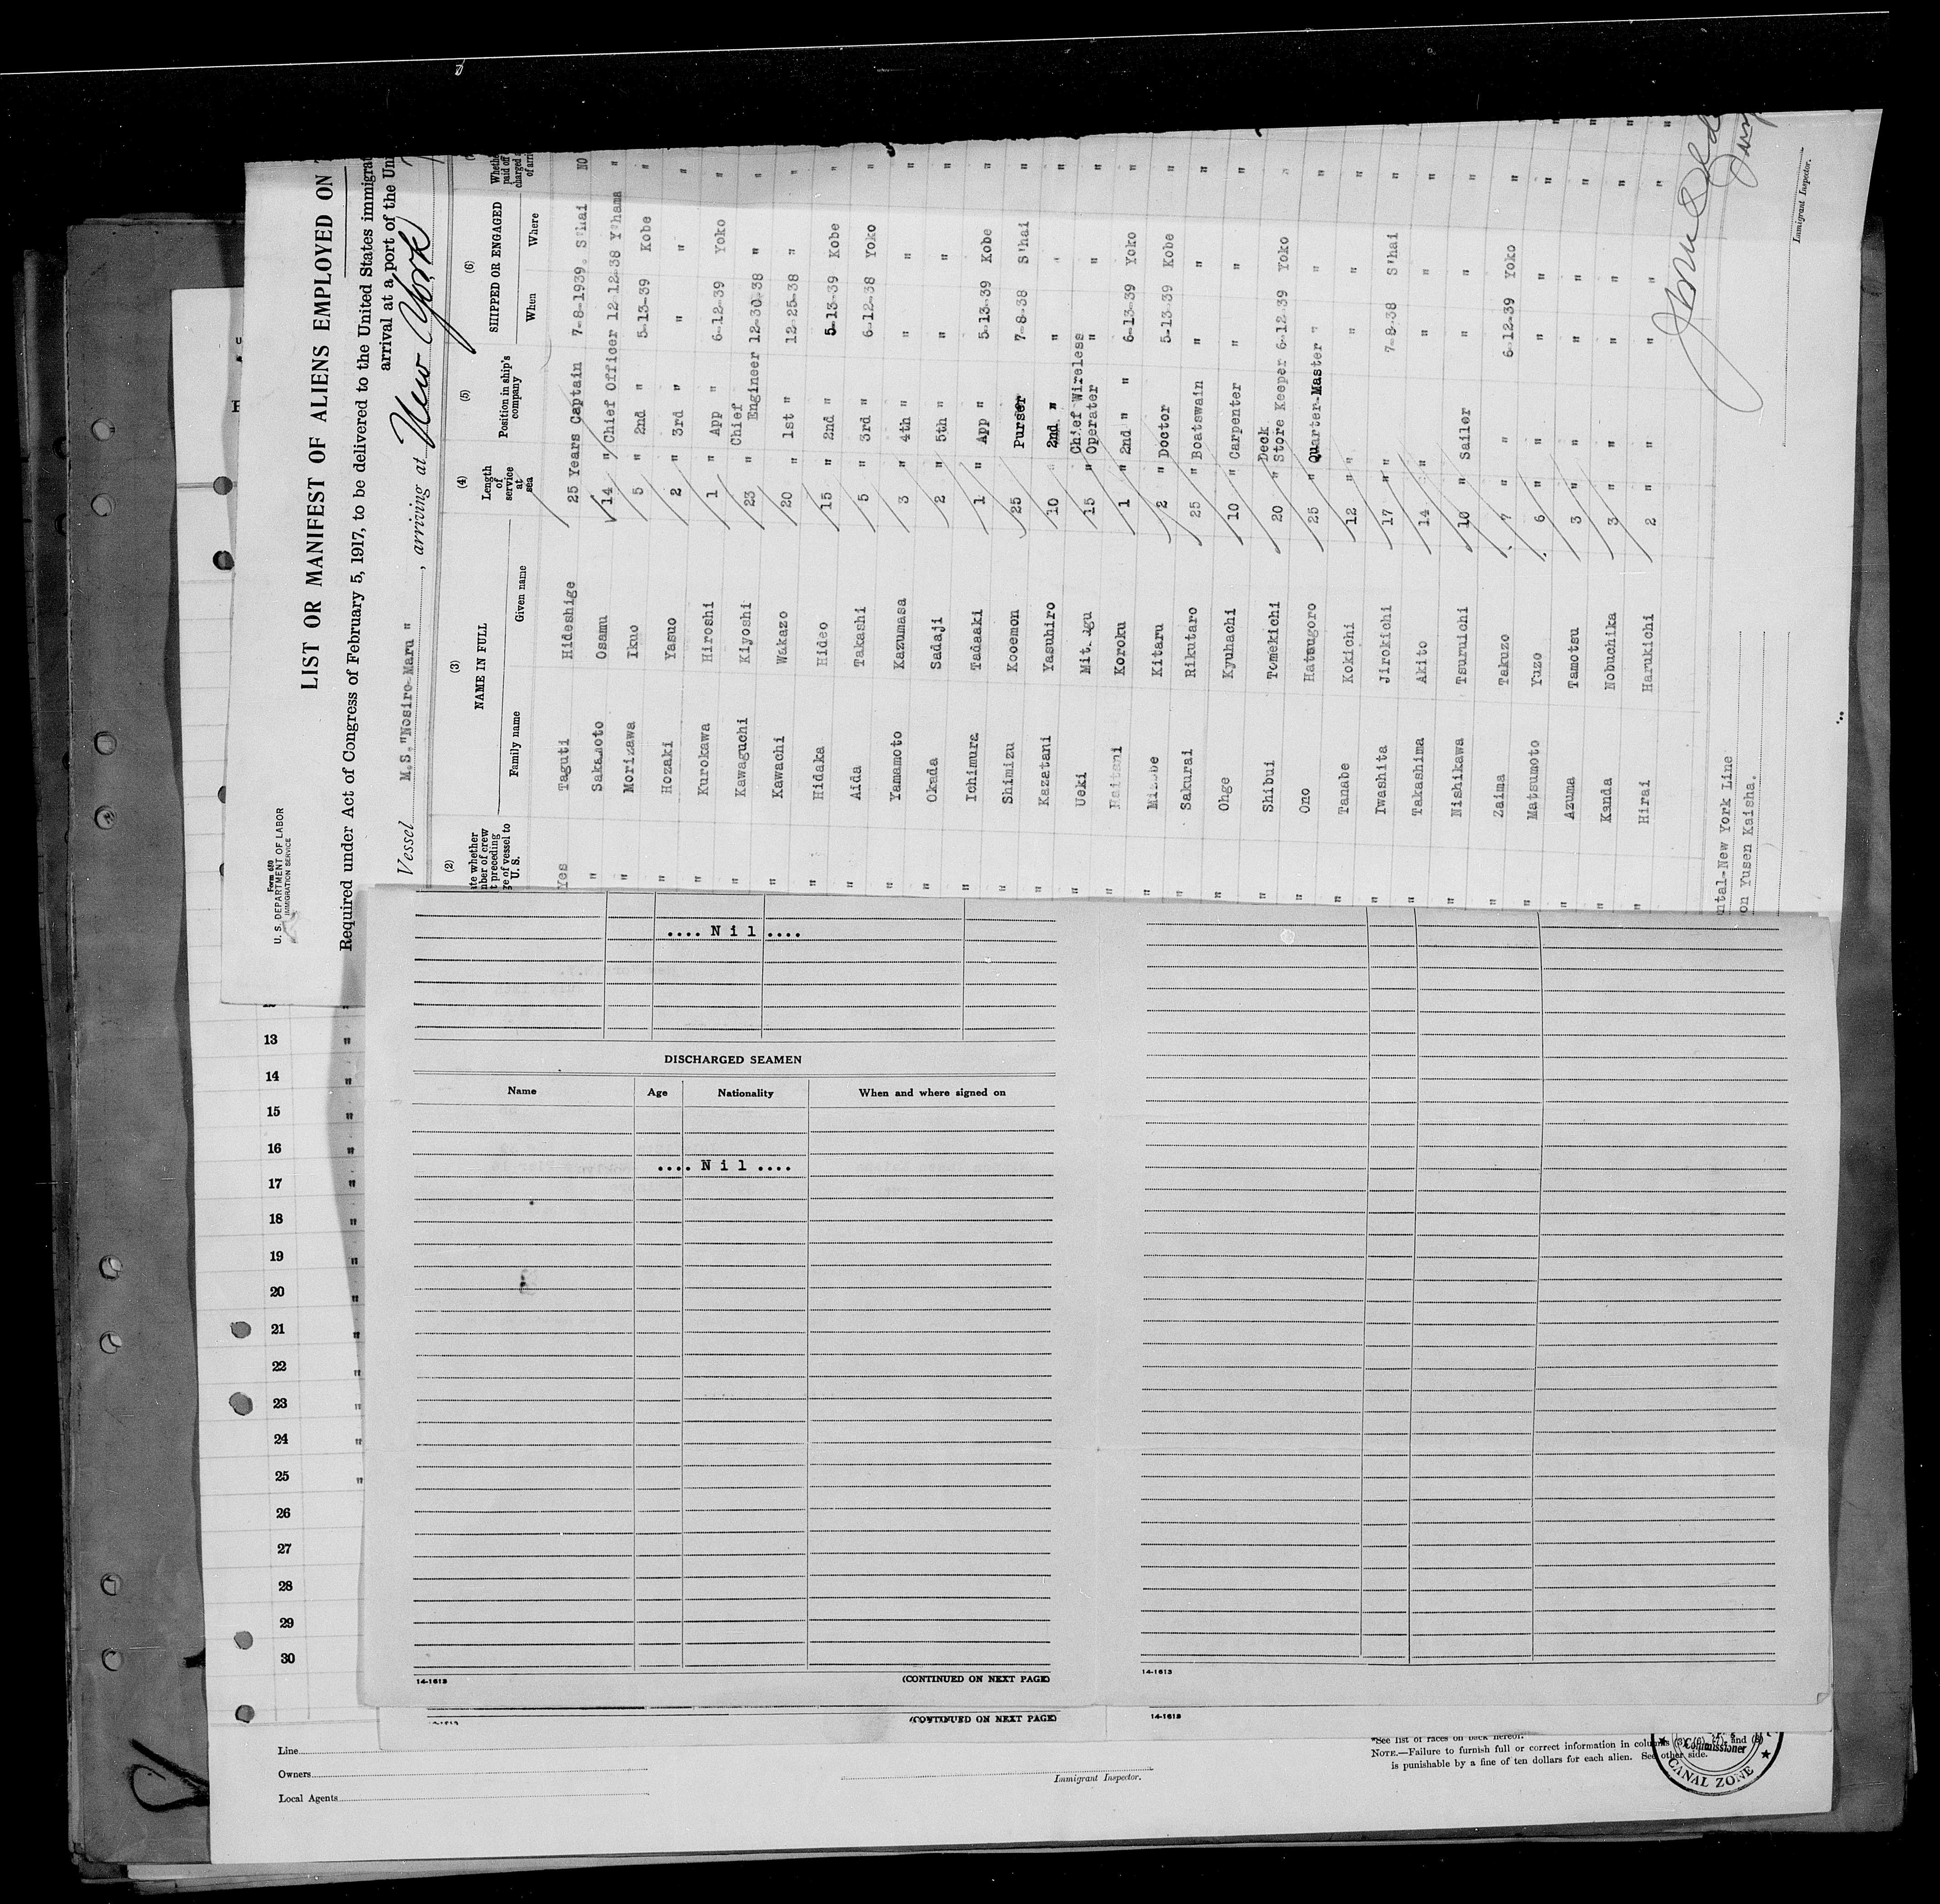 Form 680
U. S. DEPARTMENT OF LABOR
IMMIGRATION SERVICE
LIST OR MANIFEST OF ALIENS EMPLOYED ON
Required under Act of Congress of February 5, 1917, to be delivered to the United States immigrat
arrival at a port of the Uni
Vessel M.S."Nosiro-Maru", arriving at New York
(2) (3) (4) (5) (6)
NAME IN FULL Length of service at sea Position in ship's company SHIPPED OR ENGAGED
Family name Given name When Where
Yes Taguti Hideshige 25 Years Captain 7-8-1939. S'hai NO
" Sakamoto Osamu 14 " Chief Officer 12-12-38 Y'hama "
" Morizawa Ikuo 5 " 2nd " 5-13-39 Kobe "
Hozaki Yasuo 2 " 3rd " " " "
" Kurokawa Hiroshi 1 " App " 6-12-39 Yoko "
" Kawaguchi Kiyoshi 23 " Chief Engineer 12-30-38 " "
" Kawachi Wakazo 20 " 1st " 12-25-38 " "
" Hidaka Hideo 15 " 2nd " 5-13-39 Kobe "
" Aida Takashi 5 " 3rd " 6-12-38 Yoko "
" Yamamoto Kazumasa 3 " 4th " " " "
" Okada Sadaji 2 " 5th " " " "
" Ichimura Tadaaki 1 " App " 5-13-39 Kobe "
" Shimizu Kooemon 25 Purser 7-8-38 S'hai "
" Kazatani Yasuhiro 10 " 2nd " " " "
" Ueki 15 " Chief Wireless Operater " " "
" Koroku 1 " 2nd " 6-13-39 Yoko "
" Kitaru 2 " Doctor 5-13-39 Kobe "
" Sakurai Rikutaro 25 " Boatswain " " "
" Ohge Kyuhachi 10 " Carpenter " " "
" Shibui Tomekichi 20 " Deck Store Keeper 6-12-39 Yoko "
" Ono Hatsugoro 25 " Quarter-Master " " "
" Tanabe Kokichi 12 " " " " "
" Iwashita Jirokichi 17 " " 7-8-38 S'hai "
" Takashima Akito 14 " " " "
" Nishikawa Tsuruichi 10 " Sailor " " "
" Zaima Takuzo 7 " " 6-12-39 Yoko "
" Matsumoto Yuzo 6 " " " " "
" Azuma Tamotsu 3 " " " " "
" Kanda Nobuchika 3 " " " " "
" Hirai Harukichi 2 " " " " "
ntal-New York Line
on Yusen Kaisha.
Immigrant Inspector.
.... N i l ....
DISCHARGED SEAMEN
Name Age Nationality When and where signed on
.... N i l ....
14-1613 (CONTINUED ON NEXT PAGE) 14-1613
(CONTINUED ON NEXT PAGE) 14-1613
13 "
14 "
15 "
16 "
17 "
18 "
19 "
20 "
21 "
22 "
23 "
24 "
25 "
26
27
28
29
30
Line
Owners
Local Agents
Immigrant Inspector.
*See list of races on back hereof.
NOTE.—Failure to furnish full or correct information in columns (3), (6), (7), and (8)
is punishable by a fine of ten dollars for each alien. See other side.
Commissioner
CANAL ZONE